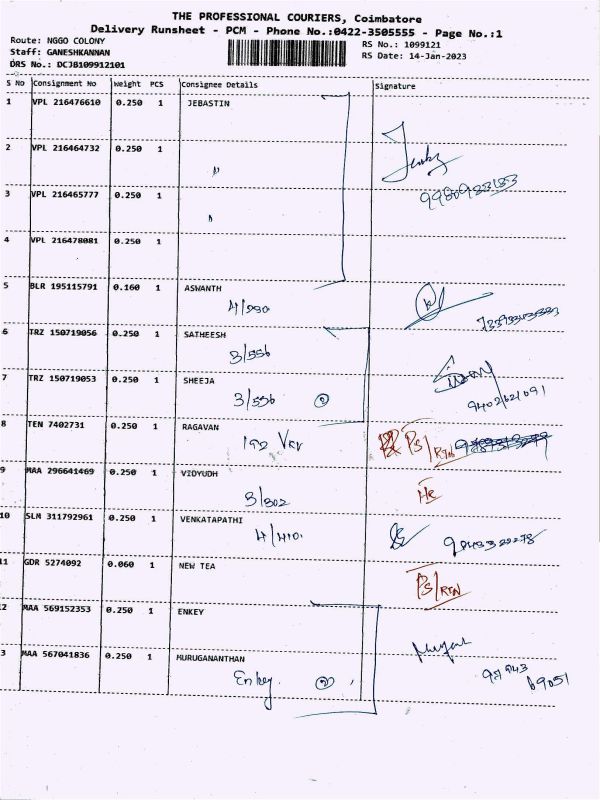 THE PROFESSIONAL COURIERS, Coimbatore
Delivery Runsheet - PCM - Phone No.:0422-3505555 - Page No.:1
Route: NGGO COLONY
RS No.: 1099121
Staff: GANESHKANNAN
RS Date: 14-Jan-2023
DRS No.: DCJ8109912101
S No Consignment No Weight PCS Consignee Details Signature
1 VPL 216476610 0.250 1 JEBASTIN
2 VPL 216464732 0.250 1
"
3 VPL 216465777 0.250 1
"
4 VPL 216478081 0.250 1
5 BLR 195115791 0.160 1 ASWANTH
6 TRZ 150719056 0.250 1 SATHEESH
3/556
7 TRZ 150719053 0.250 1 SHEEJA
3/556 2
8 TEN 7402731 0.250 1 RAGAVAN
192 VRV
9 MAA 296641469 0.250 1 VIDYUDH
3/302
10 SLM 311792961 0.250 1 VENKATAPATHI
4/410.
11 GDR 5274092 0.060 1 NEW TEA
PS/RTN
2 MAA 569152353 0.250 1 ENKEY
3 MAA 567041836 0.250 1 MURUGANANTHAN
Enkey. 2
97943
69051